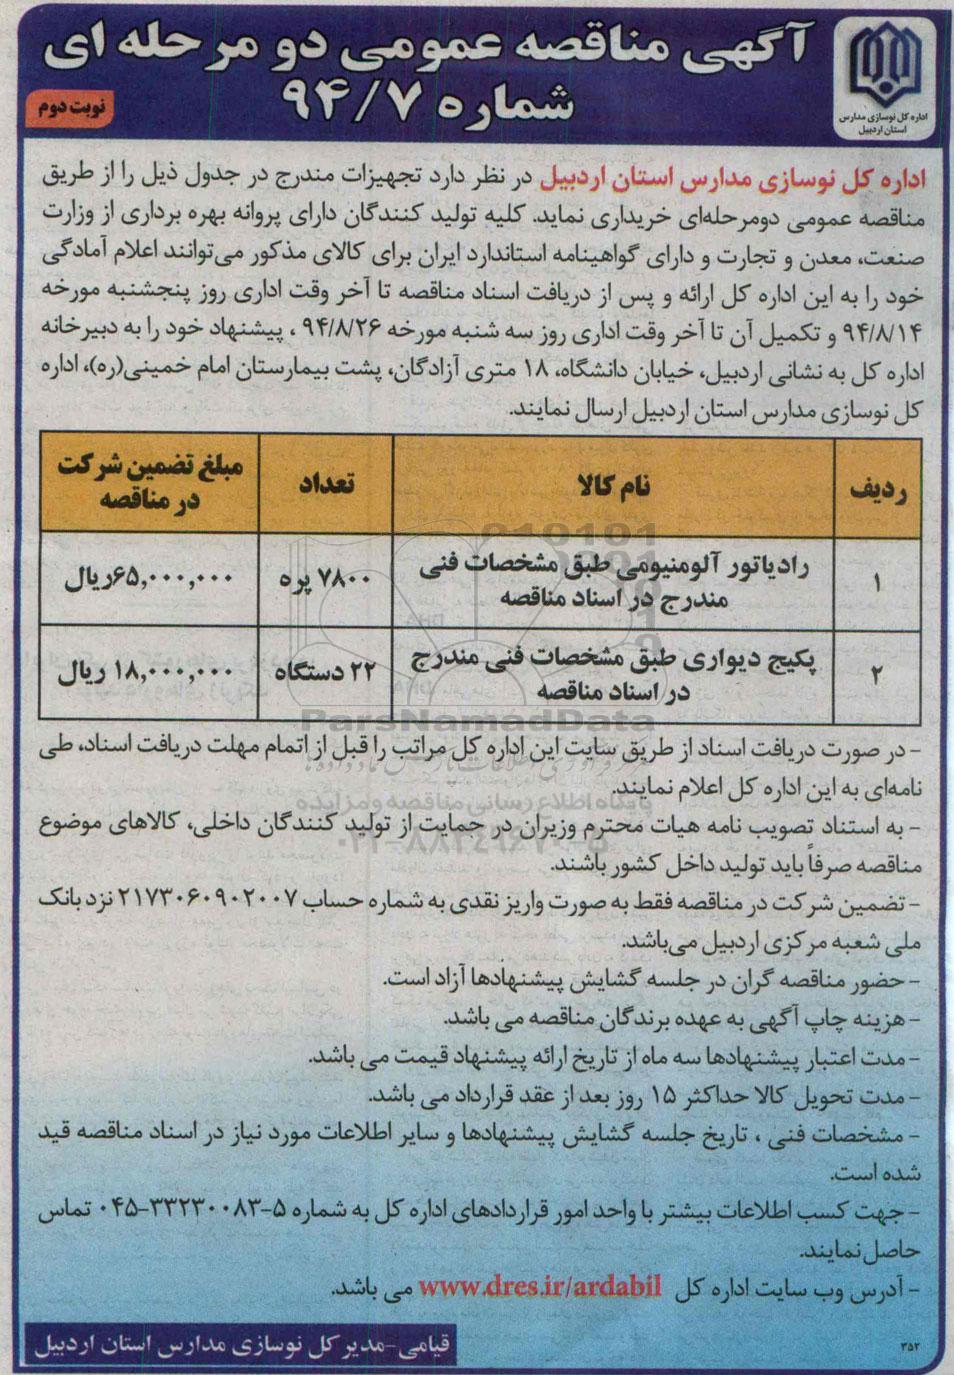 آگهی مناقصه عمومی دو مرحله ای
شماره ۹۴/۷
نوبت دوم
اداره کل نوسازی مدارس
استان اردبیل
اداره کل نوسازی مدارس استان اردبیل در نظر دارد تجهیزات مندرج در جدول ذیل را از طریق
مناقصه عمومی دومرحله‌ای خریداری نماید. کلیه تولید کنندگان دارای پروانه بهره برداری از وزارت
صنعت، معدن و تجارت و دارای گواهینامه استاندارد ایران برای کالای مذکور می‌توانند اعلام آمادگی
خود را به این اداره کل ارائه و پس از دریافت اسناد مناقصه تا آخر وقت اداری روز پنجشنبه مورخه
۹۴/۸/۱۴ و تکمیل آن تا آخر وقت اداری روز سه شنبه مورخه ۹۴/۸/۲۶ ، پیشنهاد خود را به دبیرخانه
اداره کل به نشانی اردبیل، خیابان دانشگاه، ۱۸ متری آزادگان، پشت بیمارستان امام خمینی(ره)، اداره
کل نوسازی مدارس استان اردبیل ارسال نمایند.
ردیف نام کالا تعداد مبلغ تضمین شرکت
در مناقصه
۱ رادیاتور آلومنیومی طبق مشخصات فنی
مندرج در اسناد مناقصه ۷۸۰۰ پره ۶۵,۰۰۰,۰۰۰ریال
۲ پکیج دیواری طبق مشخصات فنی مندرج
در اسناد مناقصه ۲۲ دستگاه ۱۸,۰۰۰,۰۰۰ ریال
ParsNamadData
پایگاه اطلاع رسانی مناقصه و مزایده
۰۲۱-۸۸۳۴۹۶۷۰-۵
- در صورت دریافت اسناد از طریق سایت این اداره کل مراتب را قبل از اتمام مهلت دریافت اسناد، طی
نامه‌ای به این اداره کل اعلام نمایند.
- به استناد تصویب نامه هیات محترم وزیران در حمایت از تولید کنندگان داخلی، کالاهای موضوع
مناقصه صرفاً باید تولید داخل کشور باشند.
- تضمین شرکت در مناقصه فقط به صورت واریز نقدی به شماره حساب ۲۱۷۳۰۶۰۹۰۲۰۰۷ نزد بانک
ملی شعبه مرکزی اردبیل می‌باشد.
- حضور مناقصه گران در جلسه گشایش پیشنهادها آزاد است.
- هزینه چاپ آگهی به عهده برندگان مناقصه می باشد.
- مدت اعتبار پیشنهادها سه ماه از تاریخ ارائه پیشنهاد قیمت می باشد.
- مدت تحویل کالا حداکثر ۱۵ روز بعد از عقد قرارداد می باشد.
- مشخصات فنی ، تاریخ جلسه گشایش پیشنهادها و سایر اطلاعات مورد نیاز در اسناد مناقصه قید
شده است.
- جهت کسب اطلاعات بیشتر با واحد امور قراردادهای اداره کل به شماره ۵-۳۳۲۳۰۰۸۳-۰۴۵ تماس
حاصل نمایند.
- آدرس وب سایت اداره کل www.dres.ir/ardabil می باشد.
قیامی-مدیر کل نوسازی مدارس استان اردبیل
۳۵۲